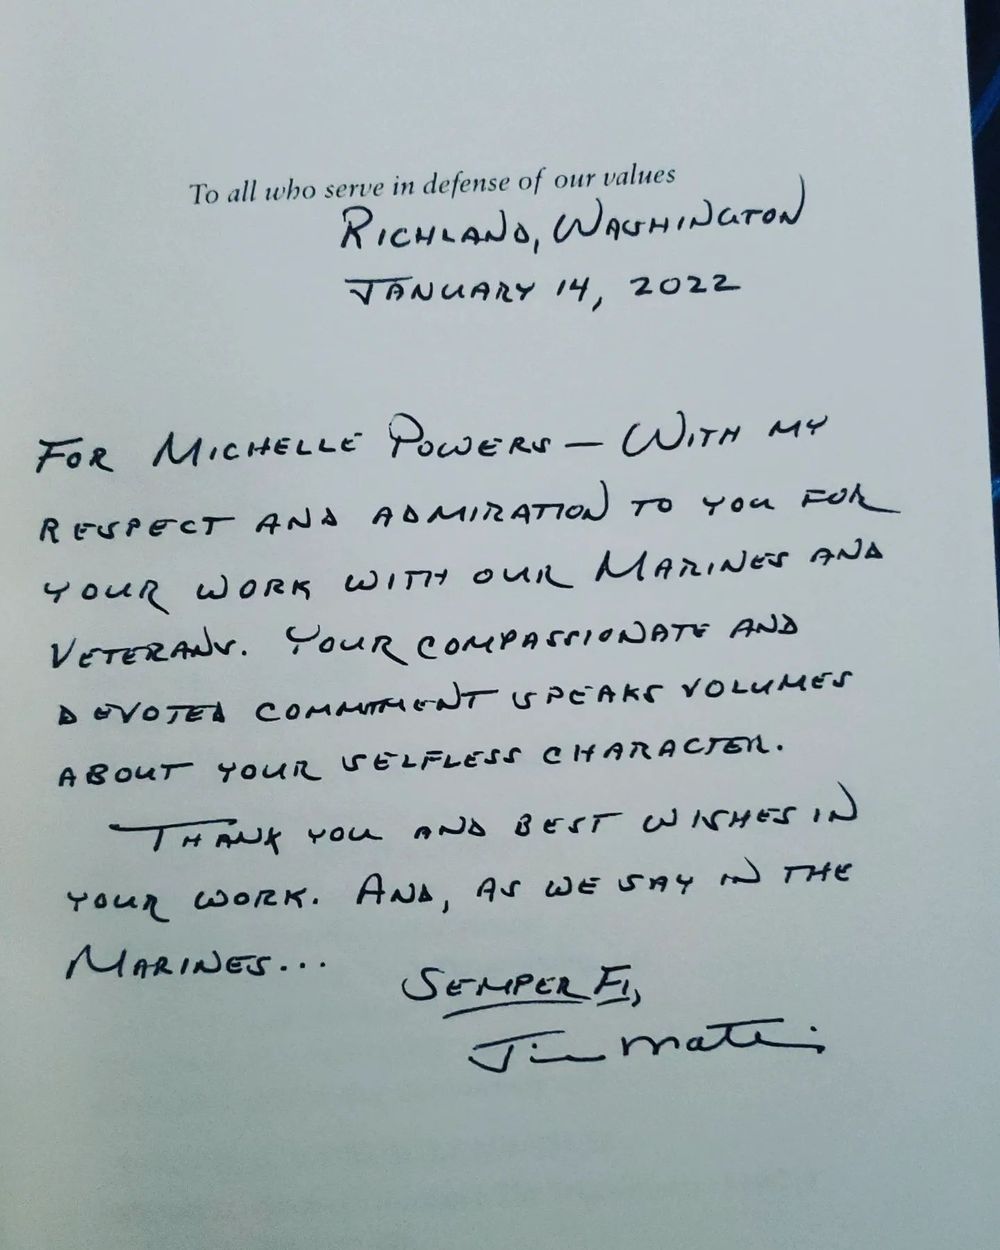 To all who serve in defense of our values
RICHLAND, WASHINGTON
JANUARY 14, 2022
FOR MICHELLE POWERS — WITH MY
RESPECT AND ADMIRATION TO YOU FOR
YOUR WORK WITH OUR MARINES AND
VETERANS. YOUR COMPASSIONATE AND
DEVOTED COMMITMENT SPEAKS VOLUMES
ABOUT YOUR SELFLESS CHARACTER.
THANK YOU AND BEST WISHES IN
YOUR WORK. AND, AS WE SAY IN THE
MARINES...
SEMPER FI,
Jim Mattis